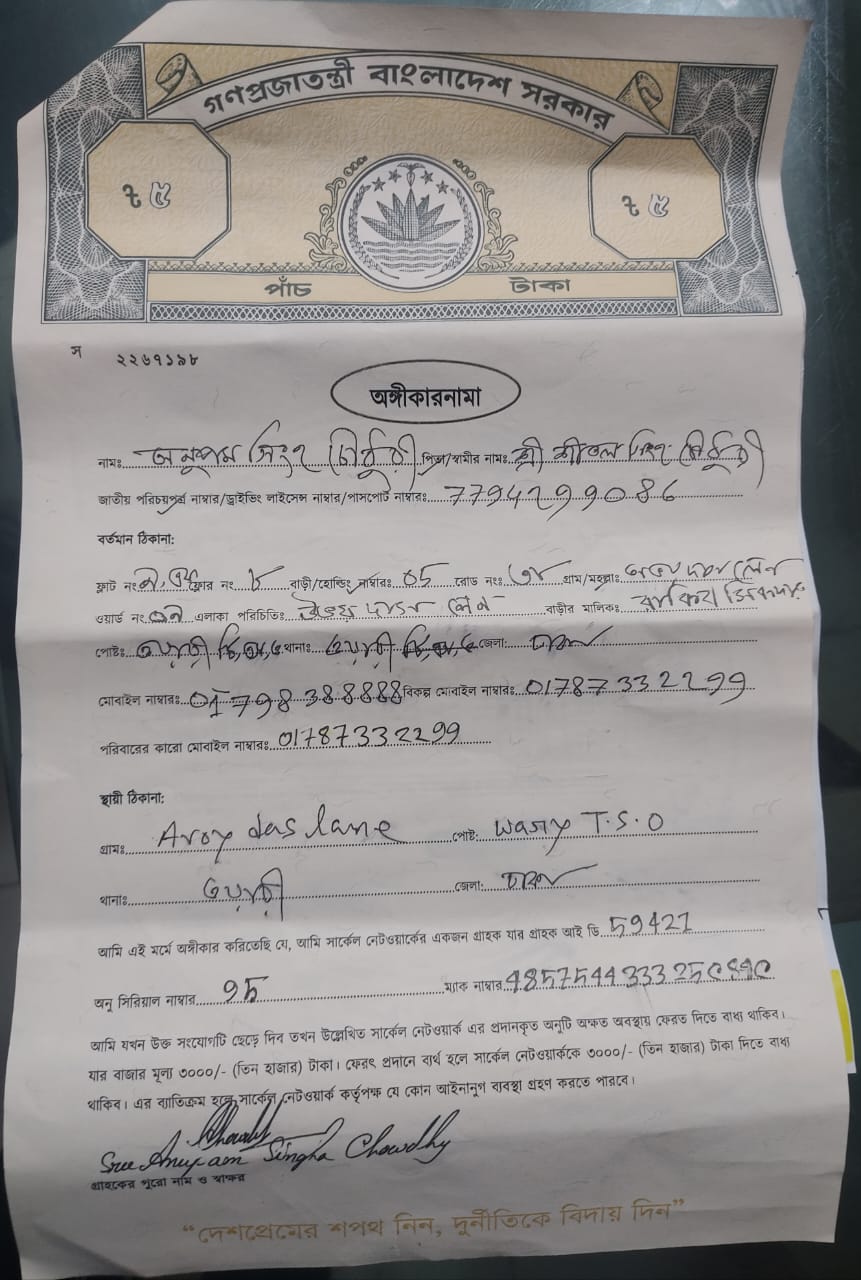 গণপ্রজাতন্ত্রী বাংলাদেশ সরকার
৳ ৫ ৳ ৫
পাঁচ টাকা
স ২২৬৭১৯৮
অঙ্গীকারনামা
নামঃ অনুপম সিংহ চৌধুরী পিতা/স্বামীর নামঃ শ্রী শীতল সিংহ চৌধুরী
জাতীয় পরিচয়পত্র নাম্বার/ড্রাইভিং লাইসেন্স নাম্বার/পাসপোর্ট নাম্বারঃ 7794299086
বর্তমান ঠিকানা:
ফ্লাট নং ফ্লোর নং ৮ বাড়ী/হোল্ডিং নাম্বারঃ 05 রোড নং গ্রাম/মহল্লাঃ অভয় দাস লেন
ওয়ার্ড নং এলাকা পরিচিতিঃ অভয় দাস লেন বাড়ীর মালিকঃ
পোষ্টঃ ওয়ারী টি,এস,ও থানাঃ ওয়ারী জেলা: ঢাকা
মোবাইল নাম্বারঃ 01798388888 বিকল্প মোবাইল নাম্বারঃ 01787332299
পরিবারের কারো মোবাইল নাম্বারঃ 01787332299
স্থায়ী ঠিকানা:
গ্রামঃ Avoy das lane পোষ্ট: wary T.S.O
থানাঃ ওয়ারী জেলা: ঢাকা
আমি এই মর্মে অঙ্গীকার করিতেছি যে, আমি সার্কেল নেটওয়ার্কের একজন গ্রাহক যার গ্রাহক আই ডি 59421
অনু সিরিয়াল নাম্বার 95 ম্যাক নাম্বার
আমি যখন উক্ত সংযোগটি ছেড়ে দিব তখন উল্লেখিত সার্কেল নেটওয়ার্ক এর প্রদানকৃত অনুটি অক্ষত অবস্থায় ফেরত দিতে বাধ্য থাকিব।
যার বাজার মূল্য ৩০০০/- (তিন হাজার) টাকা। ফেরৎ প্রদানে ব্যর্থ হলে সার্কেল নেটওয়ার্ককে ৩০০০/- (তিন হাজার) টাকা দিতে বাধ্য
থাকিব। এর ব্যাতিক্রম হলে সার্কেল নেটওয়ার্ক কর্তৃপক্ষ যে কোন আইনানুগ ব্যবস্থা গ্রহণ করতে পারবে।
Chowdhy
Sree Anupam Singha Chowdhy
গ্রাহকের পুরো নাম ও স্বাক্ষর
“দেশপ্রেমের শপথ নিন, দুর্নীতিকে বিদায় দিন”